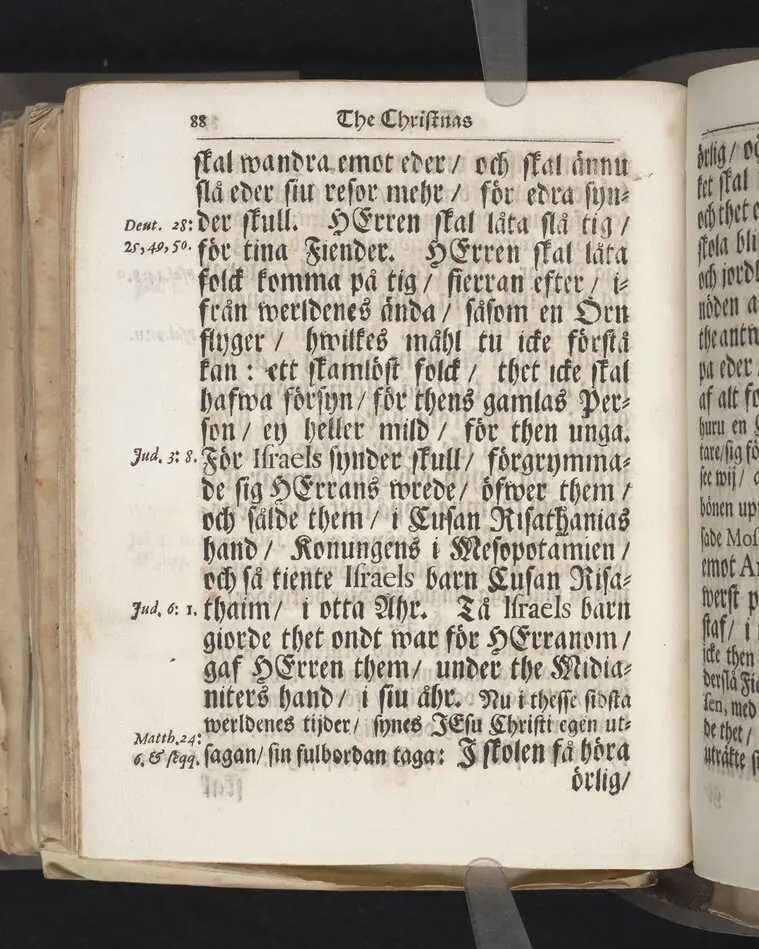 88 The Christnas
skal wandra emot eder / och skal ännu
slå eder siu resor mehr / för edra syn⸗
Deut. 28: der skull. HErren skal låta slå tig /
25, 49, 50. för tina Fiender. HErren skal låta
folck komma på tig / fierran efter / i⸗
från werldenes ända / såsom en Örn
flyger / hwilkes måhl tu icke förstå
kan : ett skamlöst folck / thet icke skal
hafwa försyn / för thens gamlas Per⸗
son / ey heller mild / för then unga.
Jud. 3: 8. För Israels synder skull / förgrymma⸗
de sig HErrans wrede / öfwer them /
och sålde them / i Cusan Risathanias
hand / Konungens i Mesopotamien /
och så tiente Israels barn Cusan Risa⸗
Jud. 6: 1. thaim / i otta Åhr. Tå Israels barn
giorde thet ondt war för HErranom /
gaf HErren them / under the Midia⸗
niters hand / i siu åhr. Nu i thesse sidsta
werldenes tijder / synes JEsu Christi egen ut⸗
Matth. 24: 6. & seqq. sagan / sin fulbordan taga: J skolen få höra
örlig /
örlig / oc
ket skal
och thet e
skola bli
och jord
nöden a
the antw
pa eder
af alt fo
huru en
tare / sig fö
see wij /
bönen up
sade Mos
emot A
werst p
staf / i
icke then
derslå Fi
sen, med
de thet /
uträkte s